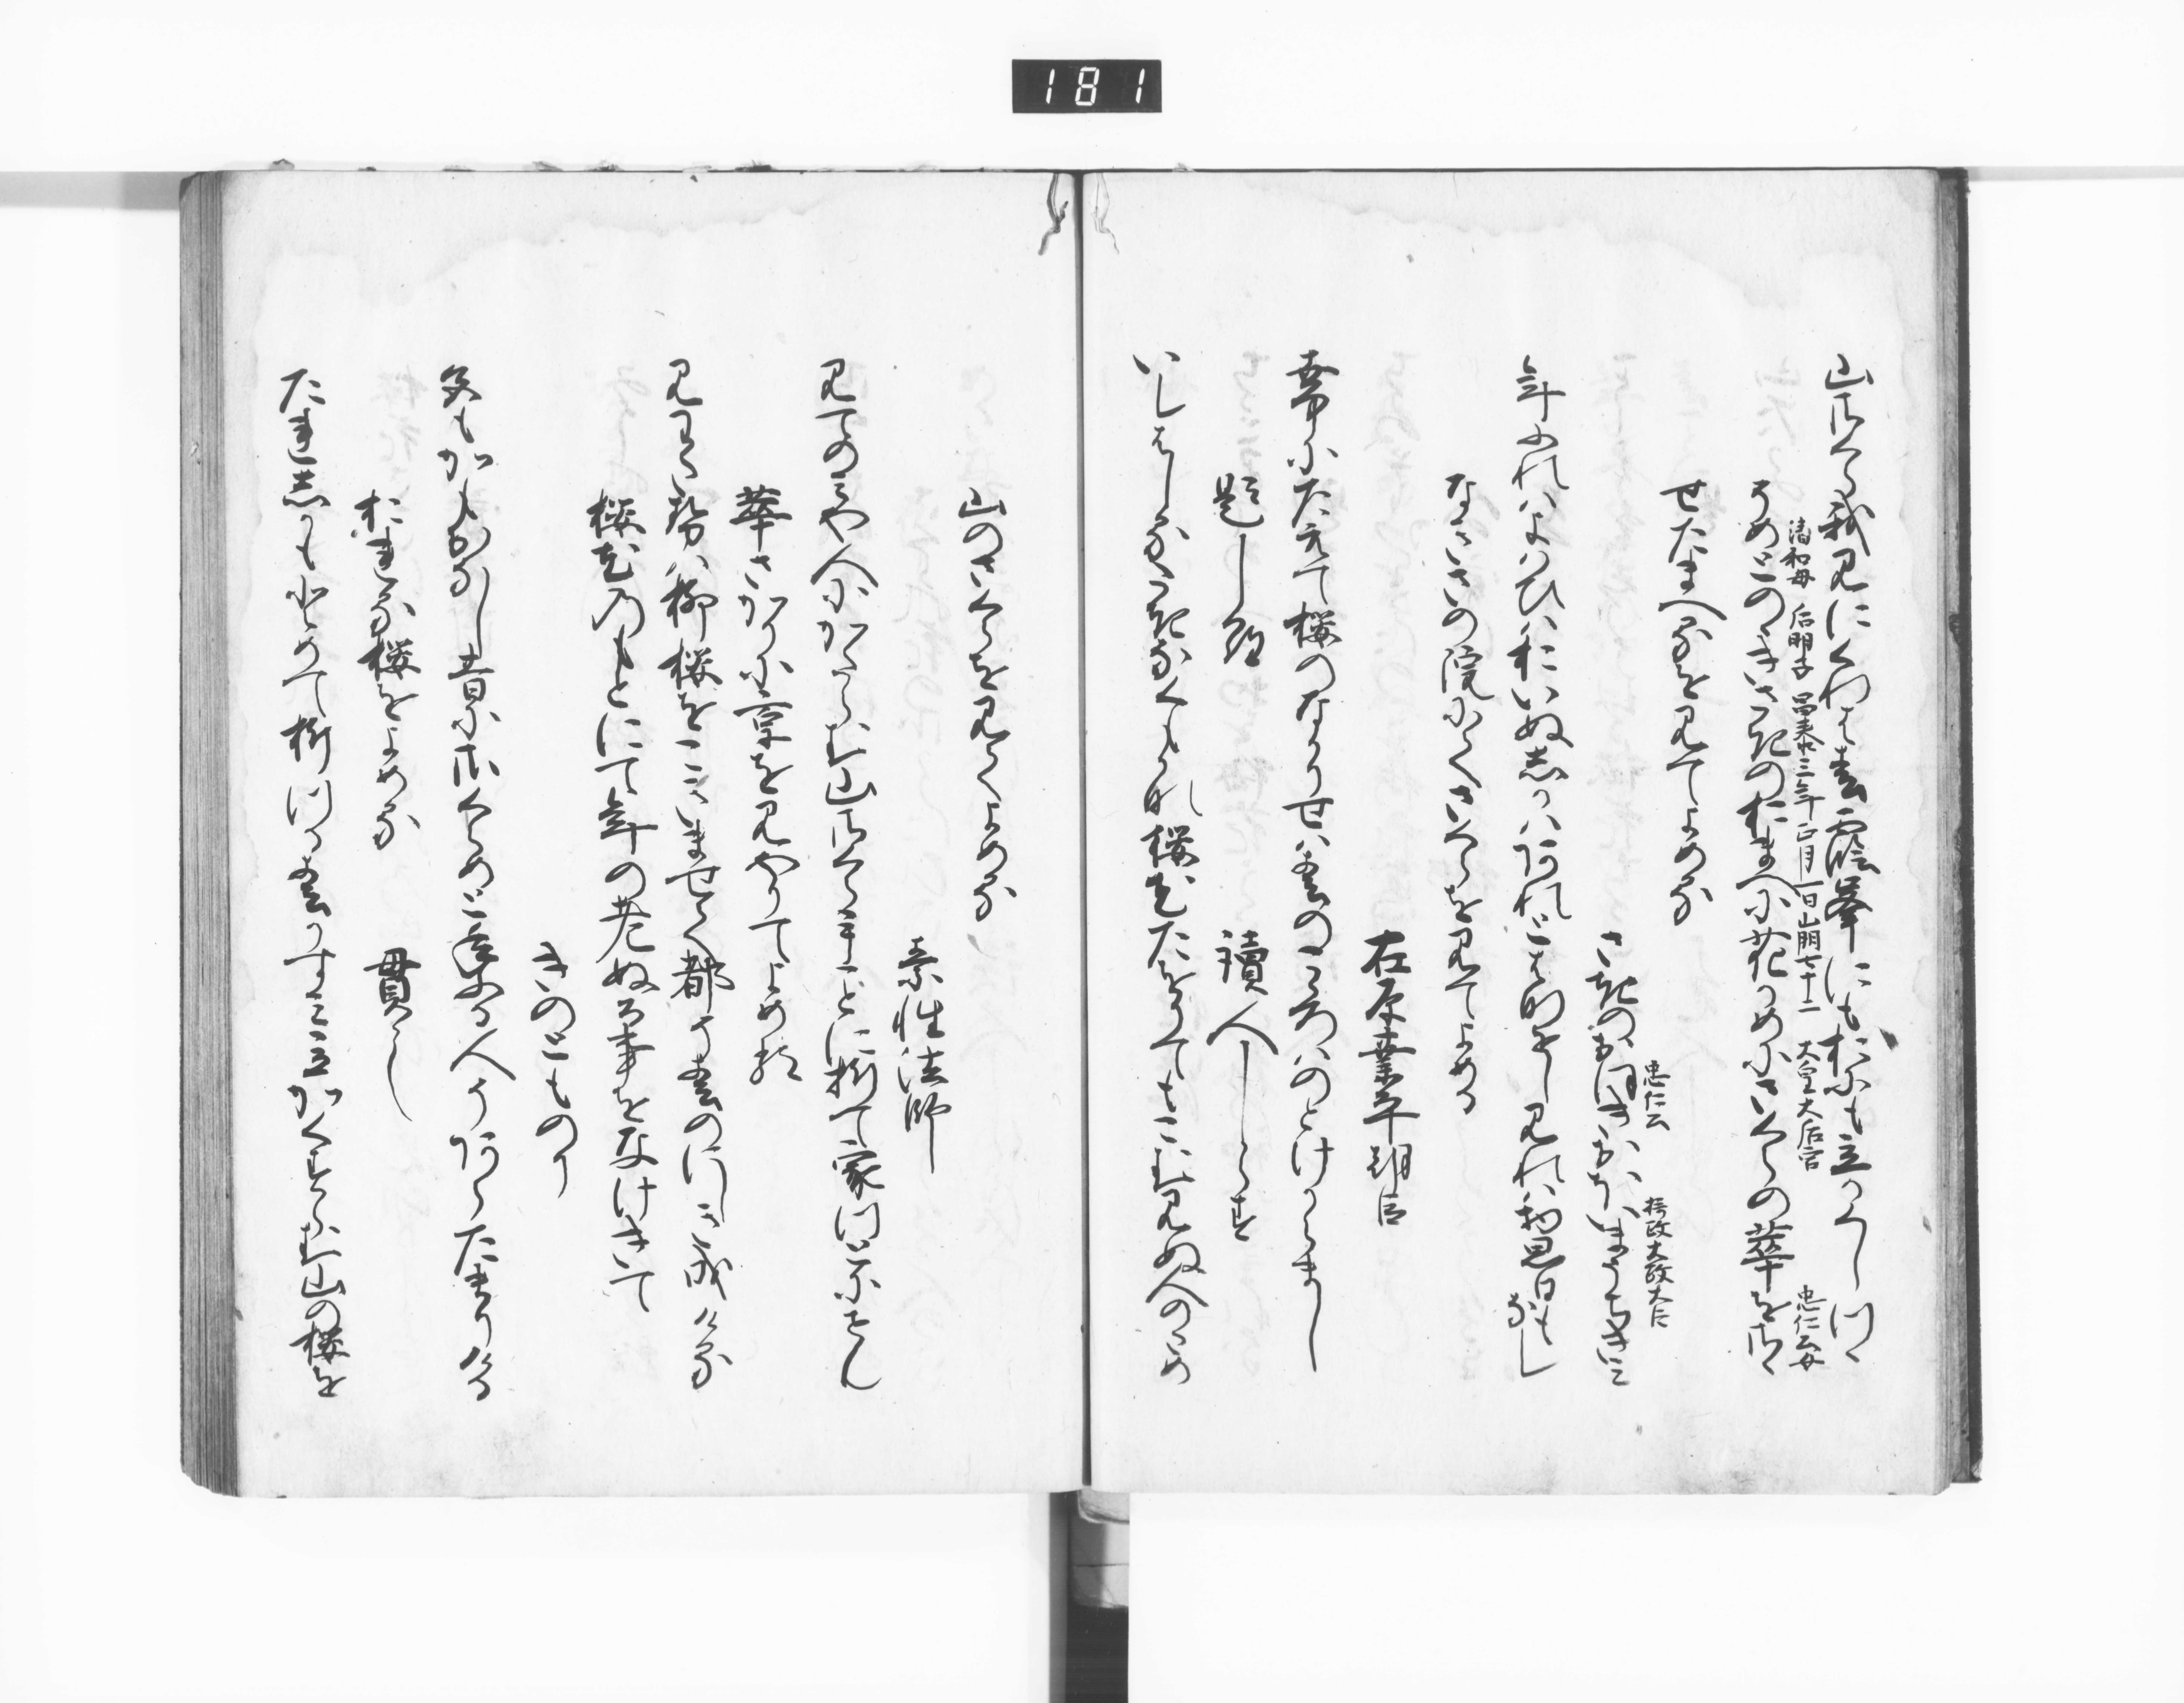 181
山さくら我見にくれは春霞峯にも おにも立かくしつゝ
清和母 后明子 昌泰三年正月一日崩七十二 大皇大后宮
忠仁公女
そめとのゝきさきのおまへに花かめにさくらの華をさゝ
せたまへるを見てよめる
忠仁公
摂政太政大臣
さきのおほきおほいまうちきみ
年ふれはよはひは おいぬ志かはあれと花をし見れは物思ひもなし
なきさの院にてさくらを見てよめる
在原業平朝臣
華中にたえて桜のなかりせは春のこゝろはのとけからまし
題しらす
読人しらす
いしはしるたきなくもかな桜花たをりてもこむ見ぬ人のため
山のさくらを見てよめる
素性法師
見てのみや人にかたらむ山さくら手ことに折て家つとにせん
華さかりに京を見やりてよめる
見わたせは柳桜をこきませて都そ春のにしき成ける
桜花のもとにて年の老ぬる事をなけきて
きのとものり
色もかもおなし昔にさくらめと年ふる人そあらたまりける
おれる桜をよめる
貫之
たれ志かもとめて折つる春かすみ立かくすらむ山の桜を